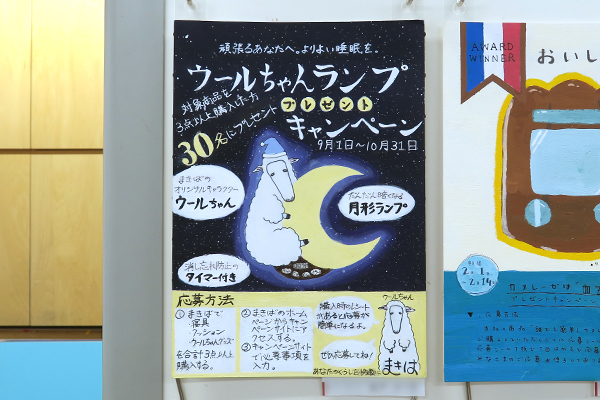 頑張るあなたへ。よりよい睡眠を。
ウールちゃんランプ
プレゼント
キャンペーン
対象商品を
3点以上購入した方
30名にプレゼント
9月1日〜10月31日
まきばの
オリジナルキャラクター
ウールちゃん
だんだん暗くなる
月形ランプ
消し忘れ防止の
タイマー付き
応募方法
① まきばで
寝具
クッション
ウールちゃんグッズ
を合計3点以上
購入する。
② まきばのホーム
ページからキャン
ペーンサイトにア
クセスする。
③ キャンペーンサイト
で必要事項を
入力。
購入時のレシート
があると応募が
簡単になるよ。
ぜひ応募してね!
ウールちゃん
まきば
AWARD
WINNER
おいし
2.1
〜2.14
プレゼントキャンペーン